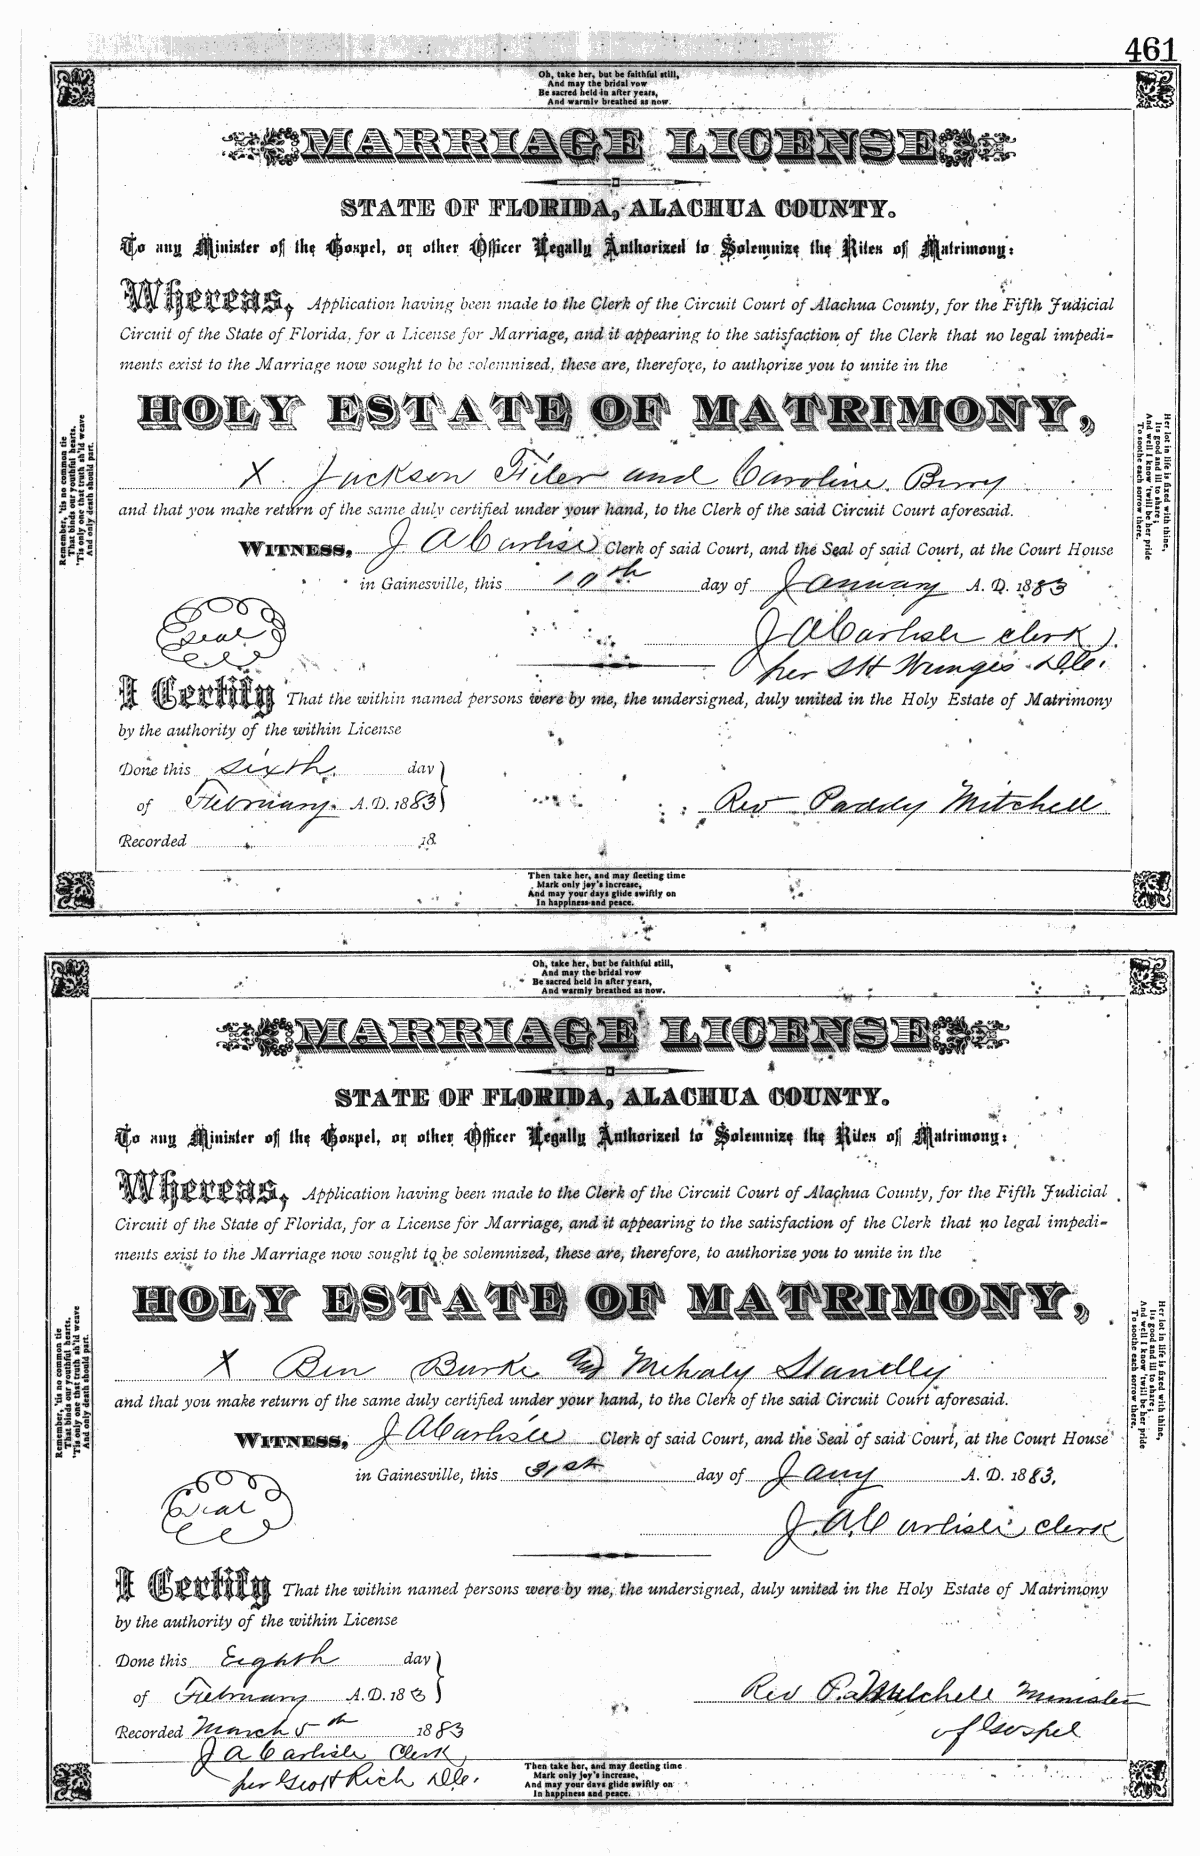 461
Oh, take her, but be faithful still,
And may the bridal vow
Be sacred held in after years,
And warmly breathed as now.
MARRIAGE LICENSE
STATE OF FLORIDA, ALACHUA COUNTY.
To any Minister of the Gospel, or other Officer Legally Authorized to Solemnize the Rites of Matrimony:
Whereas, Application having been made to the Clerk of the Circuit Court of Alachua County, for the Fifth Judicial
Circuit of the State of Florida, for a License for Marriage, and it appearing to the satisfaction of the Clerk that no legal impedi-
ments exist to the Marriage now sought to be solemnized, these are, therefore, to authorize you to unite in the
HOLY ESTATE OF MATRIMONY,
X Jackson Filer and Caroline Berry
and that you make return of the same duly certified under your hand, to the Clerk of the said Circuit Court aforesaid.
WITNESS, J A Carlisle Clerk of said Court, and the Seal of said Court, at the Court House
in Gainesville, this day of January A. D. 1883
Seal
J A Carlisle clerk
per S H D.C.
I Certify That the within named persons were by me, the undersigned, duly united in the Holy Estate of Matrimony
by the authority of the within License
Done this sixth day
of February A. D. 1883
Rev Paddy Mitchell
Recorded 18
Remember, 'tis no common tie
That binds our youthful hearts,
'Tis only one that truth sh'ld weave
And only death should part.
Her lot in life is fixed with thine,
Its good and ill to share;
And well I know 'twill be her pride
To soothe each sorrow there.
Then take her, and may fleeting time
Mark only joy's increase,
And may your days glide swiftly on
In happiness and peace.
Oh, take her, but be faithful still,
And may the bridal vow
Be sacred held in after years,
And warmly breathed as now.
MARRIAGE LICENSE
STATE OF FLORIDA, ALACHUA COUNTY.
To any Minister of the Gospel, or other Officer Legally Authorized to Solemnize the Rites of Matrimony:
Whereas, Application having been made to the Clerk of the Circuit Court of Alachua County, for the Fifth Judicial
Circuit of the State of Florida, for a License for Marriage, and it appearing to the satisfaction of the Clerk that no legal impedi-
ments exist to the Marriage now sought to be solemnized, these are, therefore, to authorize you to unite in the
HOLY ESTATE OF MATRIMONY,
X Ben Burke and Mehaly Standly
and that you make return of the same duly certified under your hand, to the Clerk of the said Circuit Court aforesaid.
WITNESS, J A Carlisle Clerk of said Court, and the Seal of said Court, at the Court House
in Gainesville, this 31st day of Jany A. D. 1883,
Seal
J. A. Carlisle clerk
I Certify That the within named persons were by me, the undersigned, duly united in the Holy Estate of Matrimony
by the authority of the within License
Done this Eighth day
of February A. D. 1883
Rev P. Mitchell Minister
of Gospel
Recorded March 5th 1883
J A Carlisle Clerk
per Geo H Rich D.C.
Remember, 'tis no common tie
That binds our youthful hearts,
'Tis only one that truth sh'ld weave
And only death should part.
Her lot in life is fixed with thine,
Its good and ill to share;
And well I know 'twill be her pride
To soothe each sorrow there.
Then take her, and may fleeting time
Mark only joy's increase,
And may your days glide swiftly on
In happiness and peace.